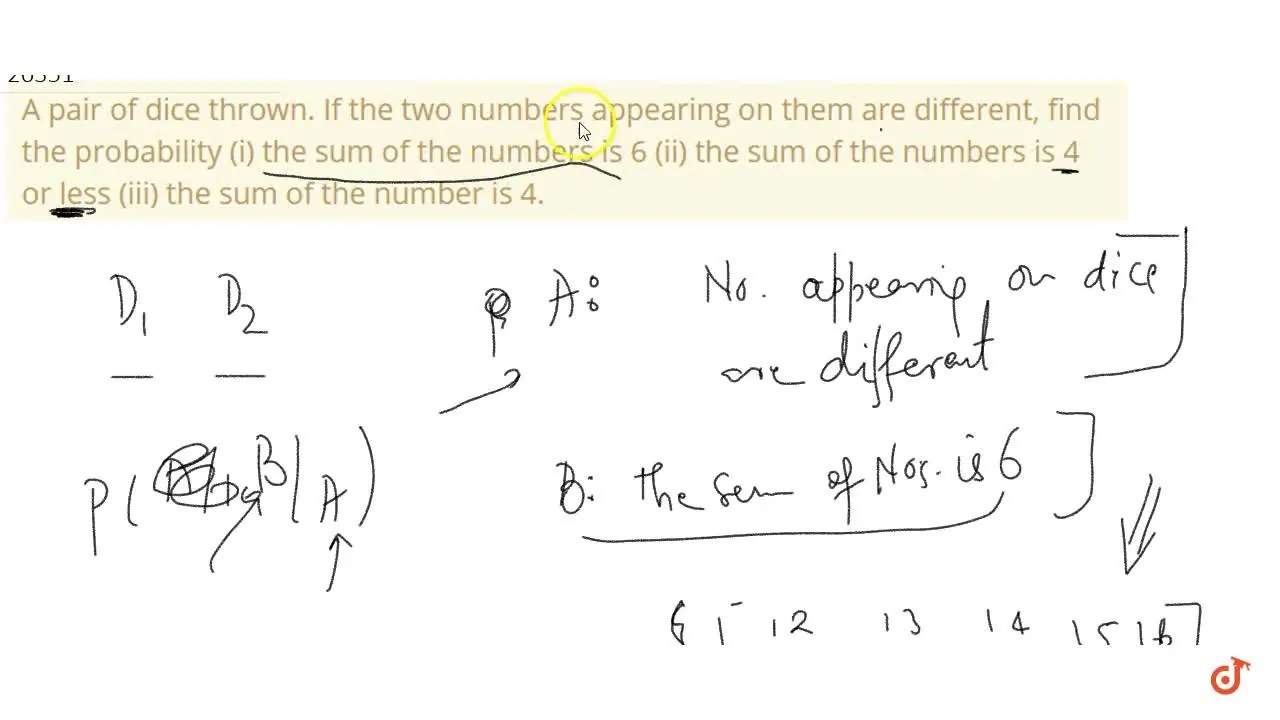 A pair of dice thrown. If the two numbers appearing on them are different, find
the probability (i) the sum of the numbers is 6 (ii) the sum of the numbers is 4
or less (iii) the sum of the number is 4.
D1 D2 A: No. appearing on dice
are different
P( B | A )
B: the sum of Nos. is 6
12 13 14 15 16